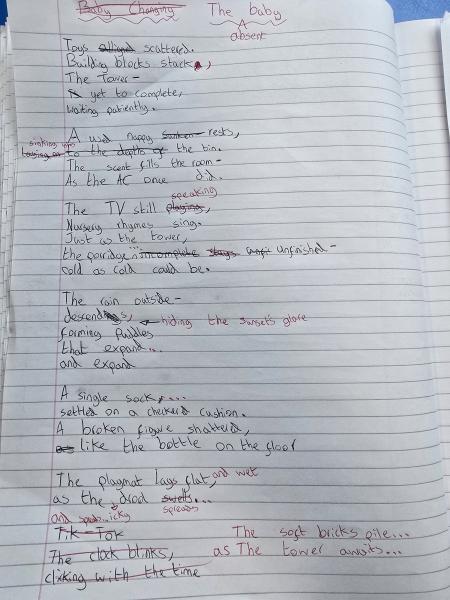 Baby Changing The baby
absent
Toys aligned scattered.
Building blocks stack,
The Tower-
yet to complete,
waiting patiently.
A wet nappy sunken rests,
sinking into
to the depths of the bin.
The scent fills the room-
As the AC once did.
speaking
The TV still playing,
Nursery rhymes sing.
Just as the tower,
the porridge... incomplete stays unfinished-
cold as cold could be.
The rain outside-
descends, hiding the sunset's glare
forming puddles
that expand...
and expand
A single sock,...
settled on a checkerd cushion.
A broken figure shattered,
like the bottle on the floor
The playmat lays flat, and wet
as the drool swells...
spreads
and icky
Tik Tok The soft bricks pile...
The clock blinks, as The tower awaits...
clicking with the time